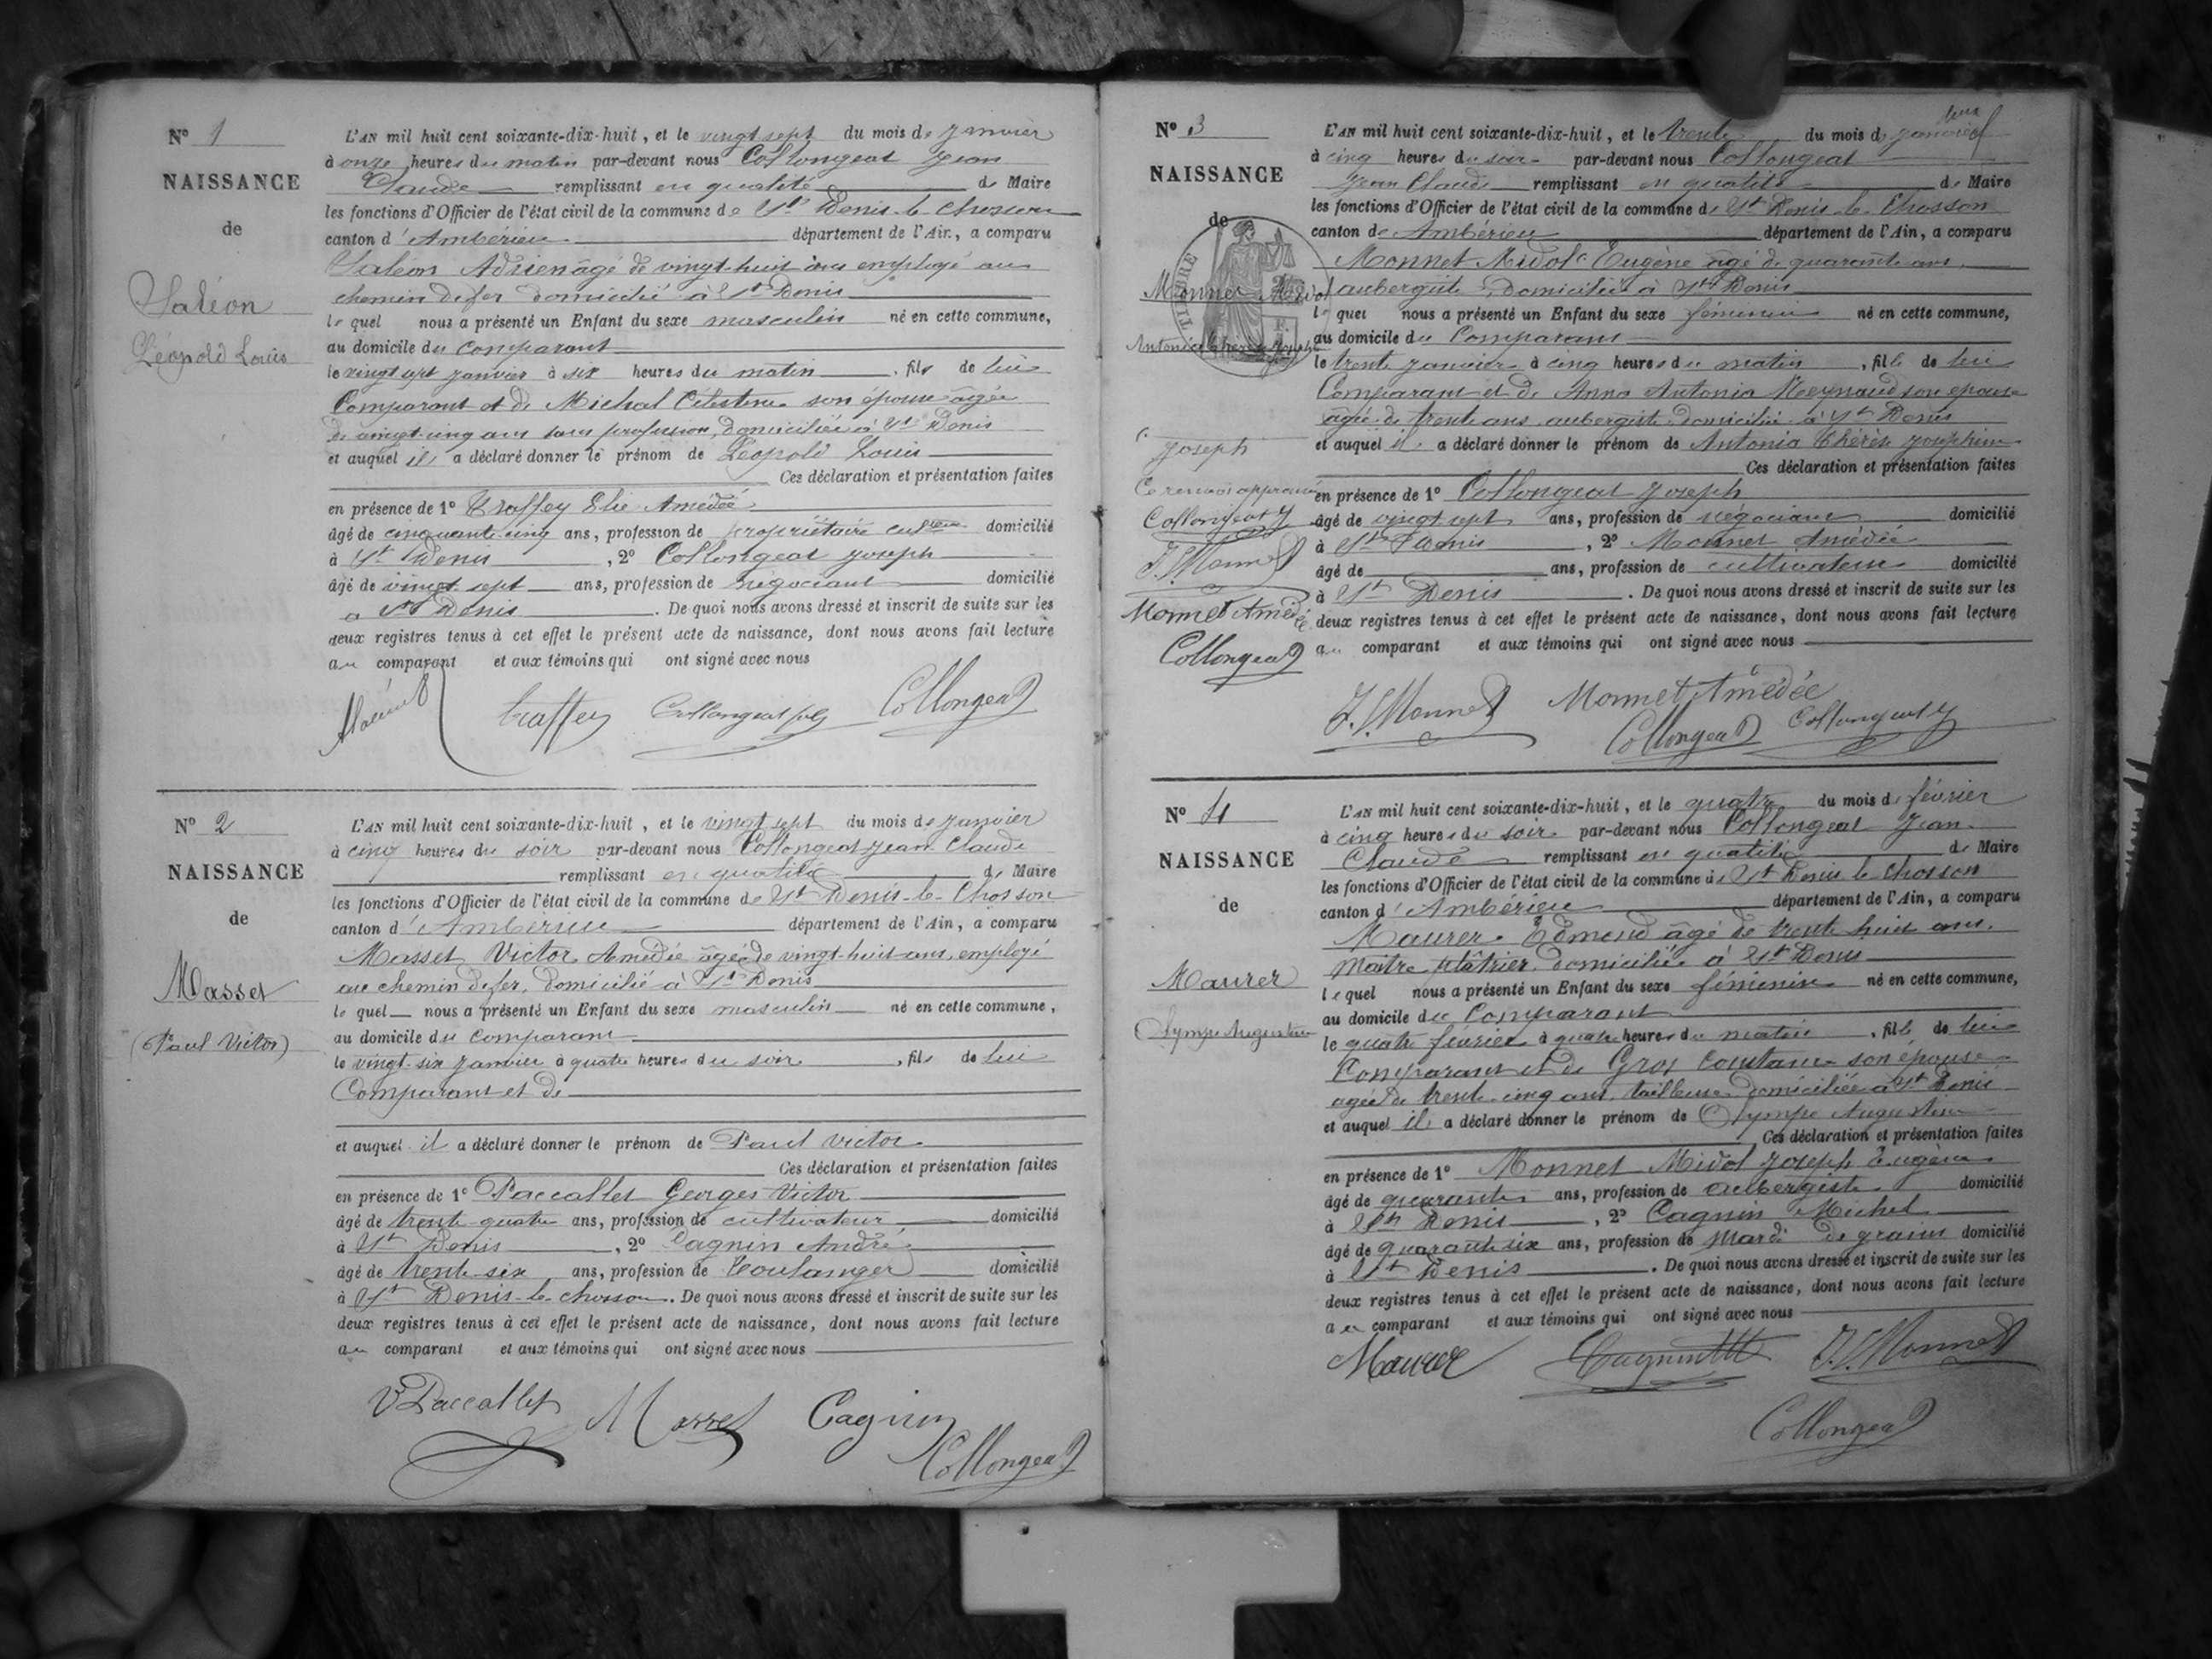 N° 1
NAISSANCE
de
Saléon
Léopold Louis
L'AN mil huit cent soixante-dix-huit, et le vingt sept du mois de janvier
à onze heures du matin par-devant nous Collongeat Jean
Claude remplissant en qualité de Maire
les fonctions d'Officier de l'état civil de la commune de St Denis le Chosson
canton d'Ambérieu département de l'Ain, a comparu
Saléon Adrien âgé de vingt huit ans employé au
chemin de fer domicilié à St Denis
le quel nous a présenté un Enfant du sexe masculin né en cette commune,
au domicile du comparant
le vingt sept janvier à six heures du matin, fils de lui
Comparant et de Michal Célestine son épouse âgée
de vingt-cinq ans sans profession, domiciliée à St Denis
et auquel il a déclaré donner le prénom de Léopold Louis
Ces déclaration et présentation faites
en présence de 1° Traffey Elie Amédée
âgé de cinquante-cinq ans, profession de propriétaire domicilié
à St Denis, 2° Collongeat Joseph
âgé de vingt sept ans, profession de négociant domicilié
à St Denis. De quoi nous avons dressé et inscrit de suite sur les
deux registres tenus à cet effet le présent acte de naissance, dont nous avons fait lecture
au comparant et aux témoins qui ont signé avec nous
Traffey Collongeat Collongeat
N° 2
NAISSANCE
de
Masset
(Paul Victor)
L'AN mil huit cent soixante-dix-huit, et le vingt sept du mois de janvier
à cinq heures du soir par-devant nous Collongeat Jean Claude
remplissant en qualité de Maire
les fonctions d'Officier de l'état civil de la commune de St Denis-le-Chosson
canton d'Ambérieu département de l'Ain, a comparu
Masset Victor Amédée âgé de vingt-huit ans, employé
au chemin de fer, domicilié à St Denis
le quel nous a présenté un Enfant du sexe masculin né en cette commune,
au domicile du comparant
le vingt-six janvier à quatre heures du soir, fils de lui
Comparant et de
et auquel il a déclaré donner le prénom de Paul Victor
Ces déclaration et présentation faites
en présence de 1° Paccallet Georges Victor
âgé de trente quatre ans, profession de cultivateur, domicilié
à St Denis, 2° Cagnin André
âgé de trente-six ans, profession de boulanger domicilié
à St Denis-le-chosson. De quoi nous avons dressé et inscrit de suite sur les
deux registres tenus à cet effet le présent acte de naissance, dont nous avons fait lecture
au comparant et aux témoins qui ont signé avec nous
V Paccallet Masset Cagnin
Collongeat
N° 3
NAISSANCE
de
Monnet Midol
Antonia Thérèse Joséphine
TIMBRE
Joseph
Ce renvoi approuvé
Collongeat J
J. Monnet
Monnet Amédée
Collongeat
L'AN mil huit cent soixante-dix-huit, et le trente du mois de janvier
à cinq heures du soir par-devant nous Collongeat
Jean Claude remplissant en qualité de Maire
les fonctions d'Officier de l'état civil de la commune de St Denis-le-Chosson
canton de Ambérieu département de l'Ain, a comparu
Monnet Midol Eugène âgé de quarante ans
aubergiste domicilié à St Denis
le quel nous a présenté un Enfant du sexe féminin né en cette commune,
au domicile du Comparant
le trente janvier à cinq heures du matin, fille de lui
Comparant et de Anna Antonia Meynaud son épouse
âgée de trente ans, aubergiste domiciliée à St Denis
et auquel il a déclaré donner le prénom de Antonia Thérèse Joséphine
Ces déclaration et présentation faites
en présence de 1° Collongeat Joseph
âgé de vingt sept ans, profession de négociant domicilié
à St Denis, 2° Monnet Amédée
âgé de ans, profession de cultivateur domicilié
à St Denis. De quoi nous avons dressé et inscrit de suite sur les
deux registres tenus à cet effet le présent acte de naissance, dont nous avons fait lecture
au comparant et aux témoins qui ont signé avec nous
J. Monnet Monnet Amédée
Collongeat Collongeat J
N° 4
NAISSANCE
de
Maurer
Olympe Augustine
L'AN mil huit cent soixante-dix-huit, et le quatre du mois de février
à cinq heures du soir par-devant nous Collongeat Jean
Claude remplissant en qualité de Maire
les fonctions d'Officier de l'état civil de la commune de St Denis le Chosson
canton d'Ambérieu département de l'Ain, a comparu
Maurer Edmond âgé de trente huit ans,
Maître plâtrier, domicilié à St Denis
le quel nous a présenté un Enfant du sexe féminin né en cette commune,
au domicile du Comparant
le quatre février à quatre heures du matin, fille de lui
Comparant et de Gros Constance son épouse
âgée de trente-cinq ans, tailleuse domiciliée à St Denis
et auquel il a déclaré donner le prénom de Olympe Augustine
Ces déclaration et présentation faites
en présence de 1° Monnet Midol Joseph Eugène
âgé de quarante ans, profession de aubergiste domicilié
à St Denis, 2° Cagnin Michel
âgé de quarante six ans, profession de Mard de grains domicilié
à St Denis. De quoi nous avons dressé et inscrit de suite sur les
deux registres tenus à cet effet le présent acte de naissance, dont nous avons fait lecture
au comparant et aux témoins qui ont signé avec nous
Maurer Cagnin J. Monnet
Collongeat